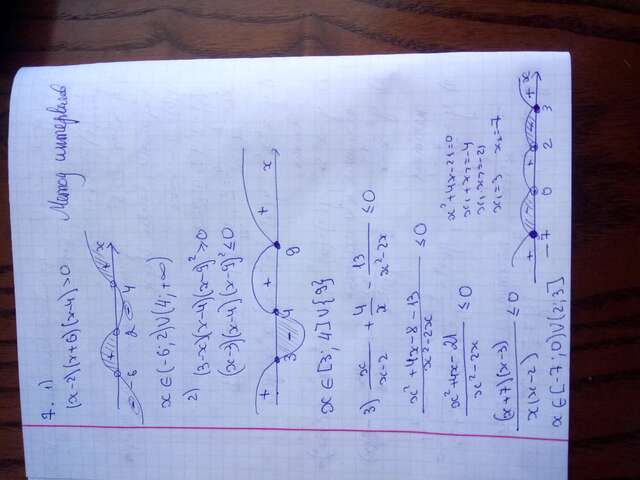 Метод интервалов
7. 1)
(x-2)(x+6)(x-4)>0
-6 2 4 x
x ∈ (-6; 2) ∪ (4; +∞)
2)
(3-x)(x-4)(x-9)²≥0
(x-3)(x-4)(x-9)²≤0
+ - + +
3 4 9 x
x ∈ [3; 4] ∪ {9}
3) x/(x-2) + 4/x - 13/(x²-2x) ≤ 0
(x²+4x-8-13)/(x²-2x) ≤ 0
(x²+4x-21)/(x²-2x) ≤ 0
x²+4x-21=0
x₁+x₂=-4
x₁·x₂=-21
x₁=3 x₂=-7
(x+7)(x-3)/(x(x-2)) ≤ 0
+ - + - +
-7 0 2 3 x
x ∈ [-7; 0) ∪ (2; 3]